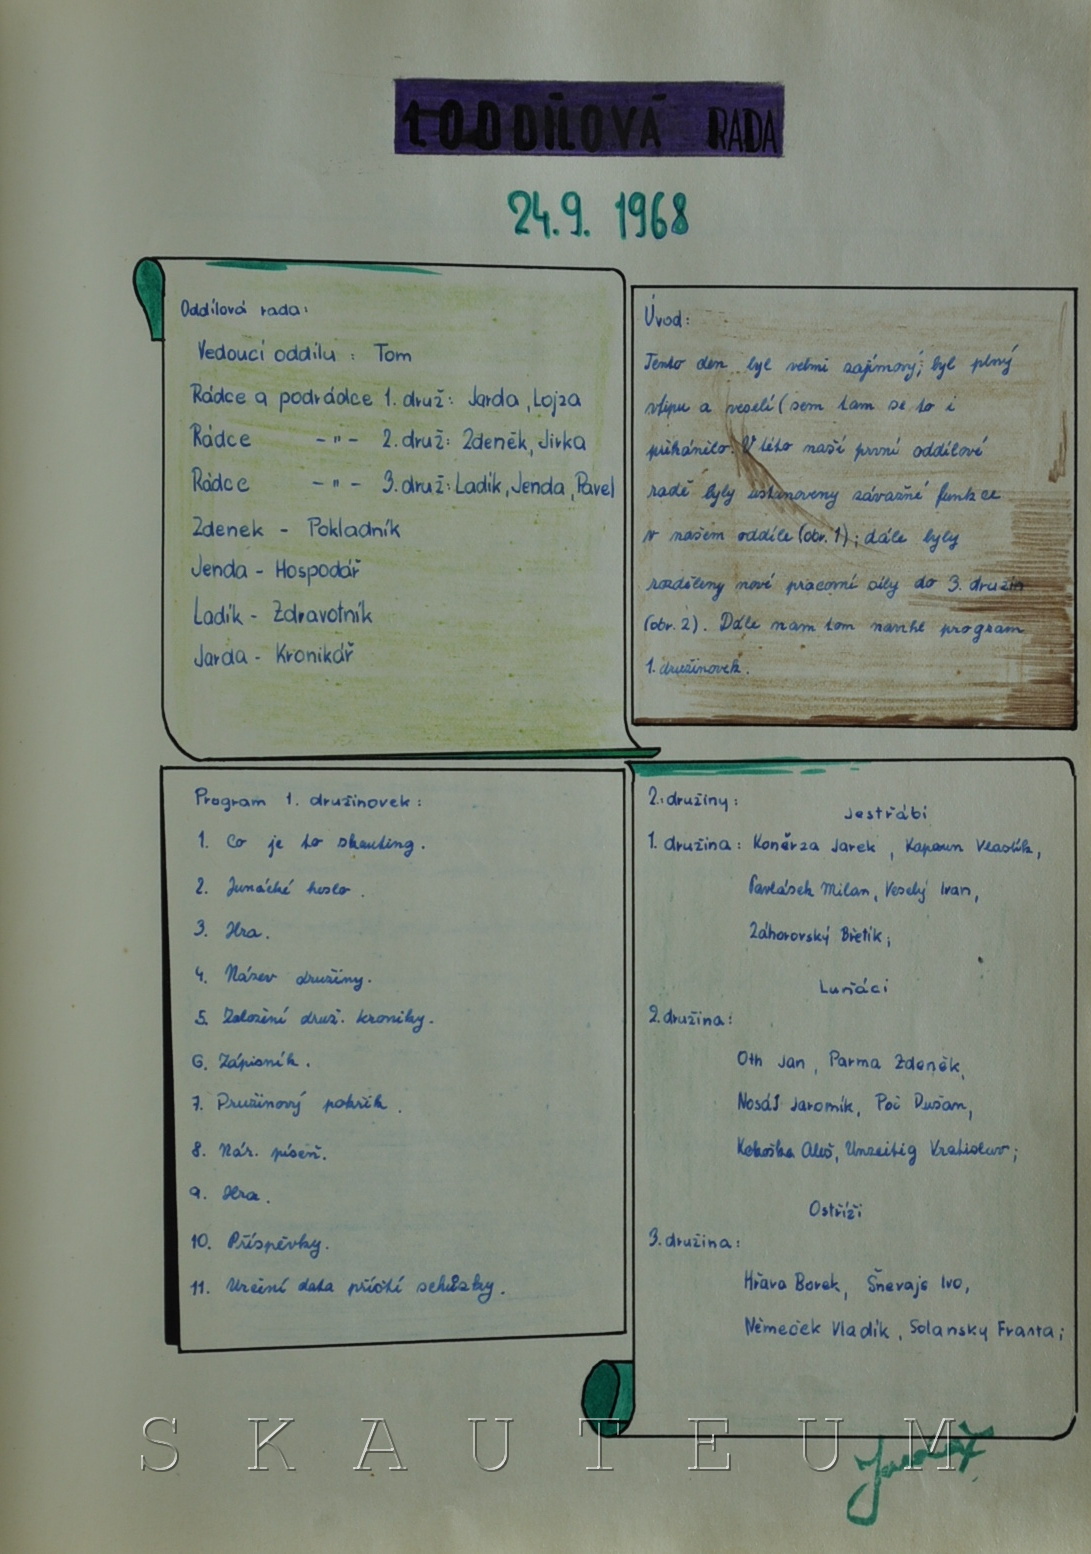 1. ODDÍLOVÁ RADA
24.9. 1968
Oddílová rada:
Vedoucí oddílu : Tom
Rádce a podrádce 1. druž: Jarda, Lojza
Rádce -"- 2. druž: Zdeněk, Jirka
Rádce -"- 3. druž: Ladík, Jenda, Pavel
Zdenek - Pokladník
Jenda - Hospodář
Ladík - Zdravotník
Jarda - Kronikář
Úvod:
Tento den byl velmi zajímový; byl plný
vtipu a veselí (sem tam se to i
přihánilo. V této naší první oddílové
radě byly ustanoveny závažné funkce
v našem oddíle (obr. 1); dále byly
rozděleny nové pracovní síly do 3. družin
(obr. 2). Dále nam tom navrhl program
1. družinovek.
Program 1. družinovek :
1. Co je to skauting.
2. Junácké heslo.
3. Hra.
4. Název družiny.
5. Založení druž. kroniky.
6. Zápisník.
7. Družinový pokřik.
8. Nár. píseň.
9. Hra.
10. Příspěvky.
11. Určení data příští schůzky.
2. družiny:
Jestřábi
1. družina : Koněrza Jarek, Kapoun Vlastík,
Pavlásek Milan, Veselý Ivan,
Záhorovský Břetík;
Luňáci
2. družina :
Oth Jan, Parma Zdeněk,
Nosál Jaromík, Poč Dušan,
Kokoška Aleš, Unzeitig Vratislav;
Ostříži
3. družina :
Hřava Borek, Šnevajs Ivo,
Němeček Vladík, Solansky Franta;
SKAUTEUM